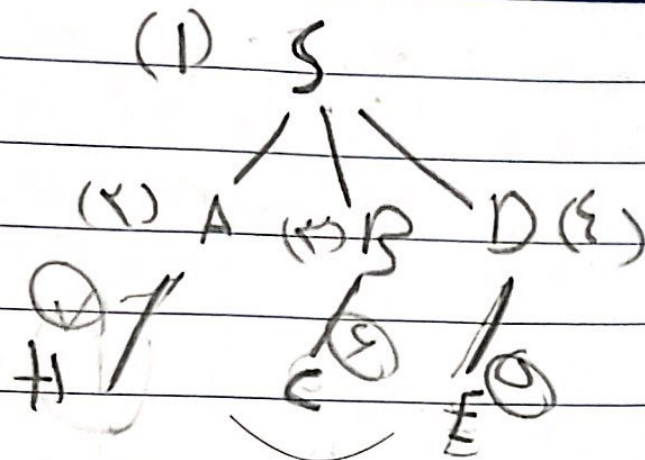 (1) S
(٢) A (٣) B D (٤)
٧
H C ۶ E ٥